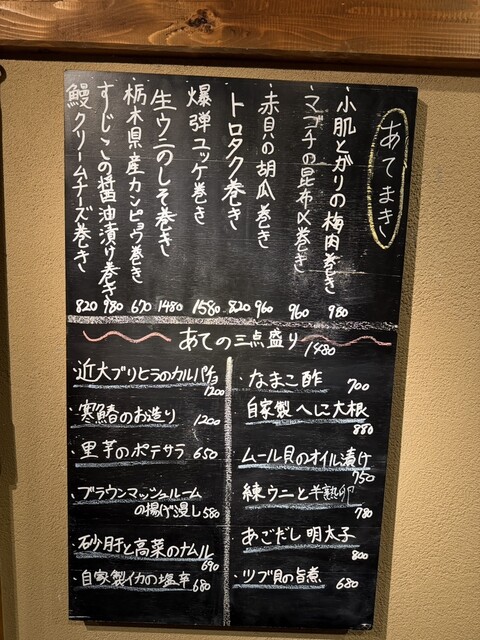 あてまき
・小肌とガリの梅肉巻き 980
・マゴチの昆布〆巻き 960
・赤貝の胡瓜巻き 960
・トロタク巻き 820
・爆弾ユッケ巻き 1580
・生ウニのしそ巻き 1480
・栃木県産カンピョウ巻き 670
・すじこの醤油漬け巻き 980
鰻クリームチーズ巻き 820
あての三点盛り 1480
近大ブリヒラのカルパチョ 1200
・寒鰆のお造り 1200
・里芋のポテサラ 650
・ブラウンマッシュルーム
の揚げ浸し 580
・砂肝と高菜のナムル 690
・自家製イカの塩辛 680
・なまこ酢 700
自家製へに大根 880
ムール貝のオイル漬け 750
練ウニと半熟卵 780
あごだし明太子 800
・ツブ貝の旨煮 680